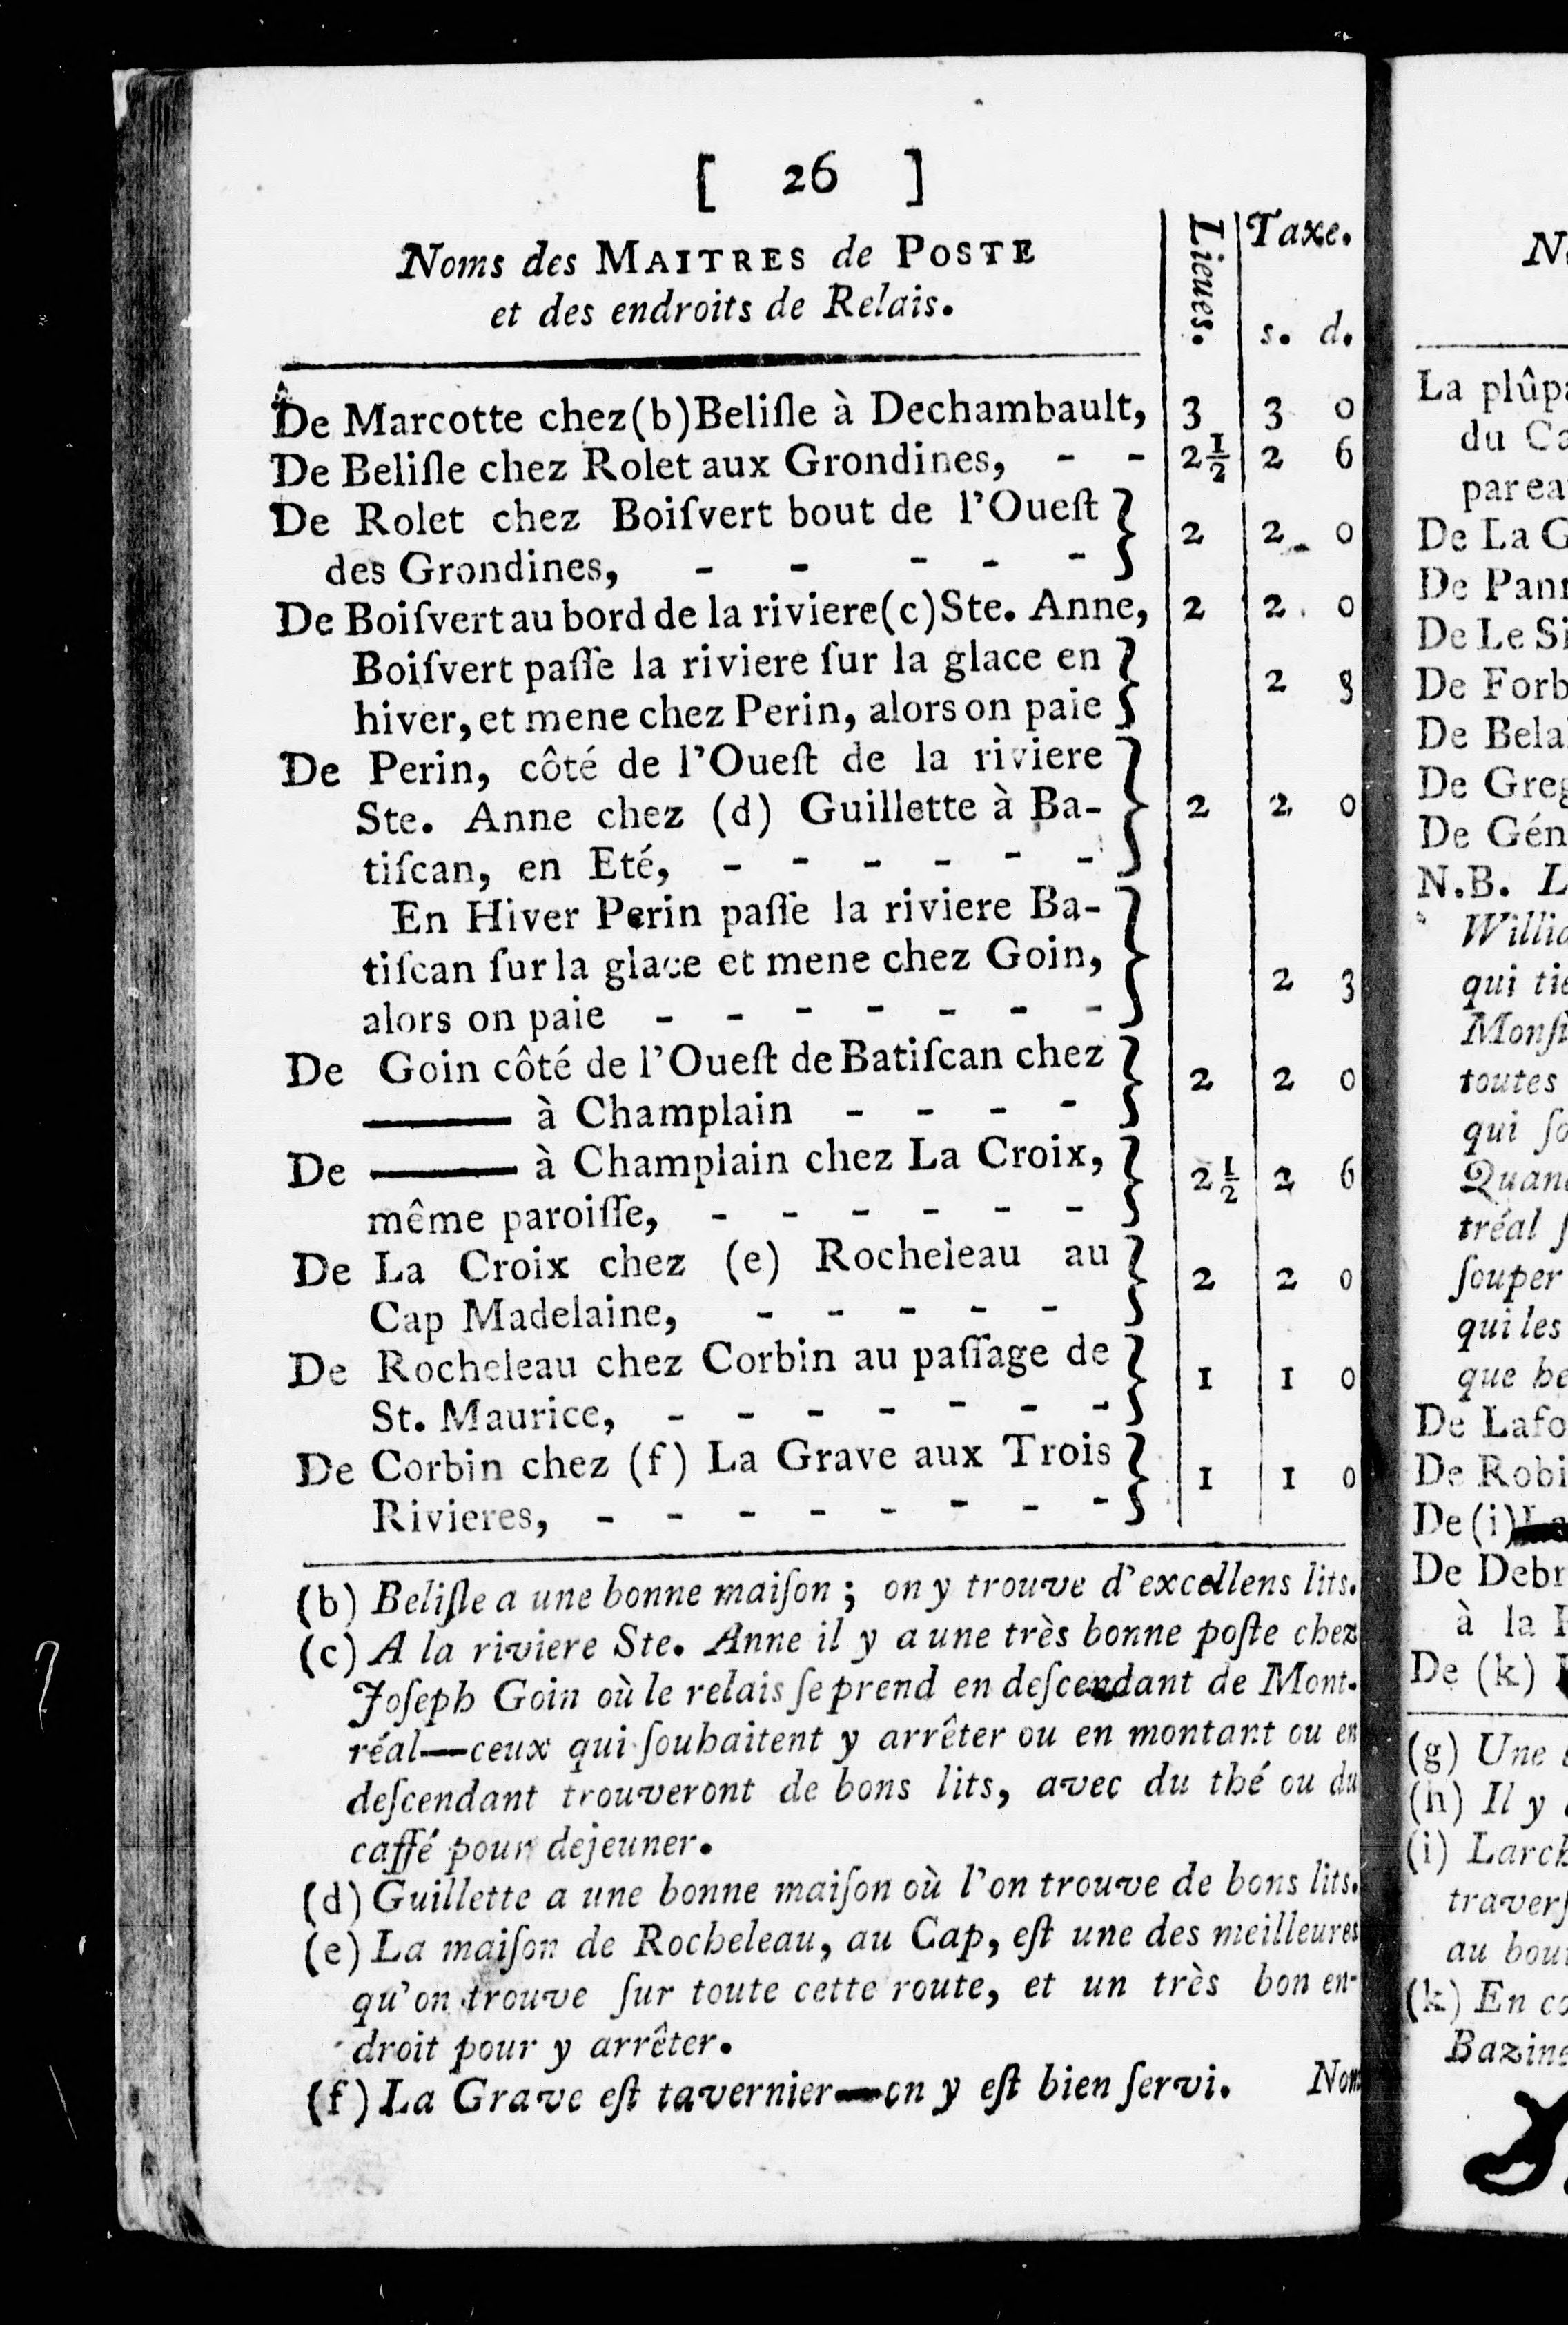 [ 26 ]
Noms des MAITRES de POSTE
et des endroits de Relais.
Lieues.
Taxe.
s. d.
De Marcotte chez (b) Beliſle à Dechambault, 3 3 0
De Beliſle chez Rolet aux Grondines, - - 2½ 2 6
De Rolet chez Boiſvert bout de l'Oueſt
des Grondines, - - - - - 2 2 0
De Boiſvert au bord de la riviere (c) Ste. Anne, 2 2 0
Boiſvert paſſe la riviere ſur la glace en
hiver, et mene chez Perin, alors on paie 2 3
De Perin, côté de l'Oueſt de la riviere
Ste. Anne chez (d) Guillette à Ba- 2 2 0
tiſcan, en Eté, - - - - - -
En Hiver Perin paſſe la riviere Ba-
tiſcan ſur la glace et mene chez Goin, 2 3
alors on paie - - - - - - -
De Goin côté de l'Oueſt de Batiſcan chez
—— à Champlain - - - - 2 2 0
De —— à Champlain chez La Croix,
même paroiſſe, - - - - - - 2½ 2 6
De La Croix chez (e) Rocheleau au
Cap Madelaine, - - - - - 2 2 0
De Rocheleau chez Corbin au paſſage de
St. Maurice, - - - - - - - 1 1 0
De Corbin chez (f) La Grave aux Trois
Rivieres, - - - - - - - - 1 1 0
(b) Beliſle a une bonne maiſon ; on y trouve d'excellens lits.
(c) A la riviere Ste. Anne il y a une très bonne poſte chez
Joſeph Goin où le relais ſe prend en deſcendant de Mont-
réal—ceux qui ſouhaitent y arrêter ou en montant ou en
deſcendant trouveront de bons lits, avec du thé ou du
caffé pour dejeuner.
(d) Guillette a une bonne maiſon où l'on trouve de bons lits.
(e) La maiſon de Rocheleau, au Cap, eſt une des meilleures
qu'on trouve ſur toute cette route, et un très bon en-
droit pour y arrêter.
(f) La Grave eſt tavernier—on y eſt bien ſervi.
La
du
De La
De
De Le
De
De
De
De
N.B.
qui
toutes
qui
ſouper
qui les
que
De
De
De (i)
De
à la
De (k)
(g) Une
(h) Il y
(i)
au
(k) En